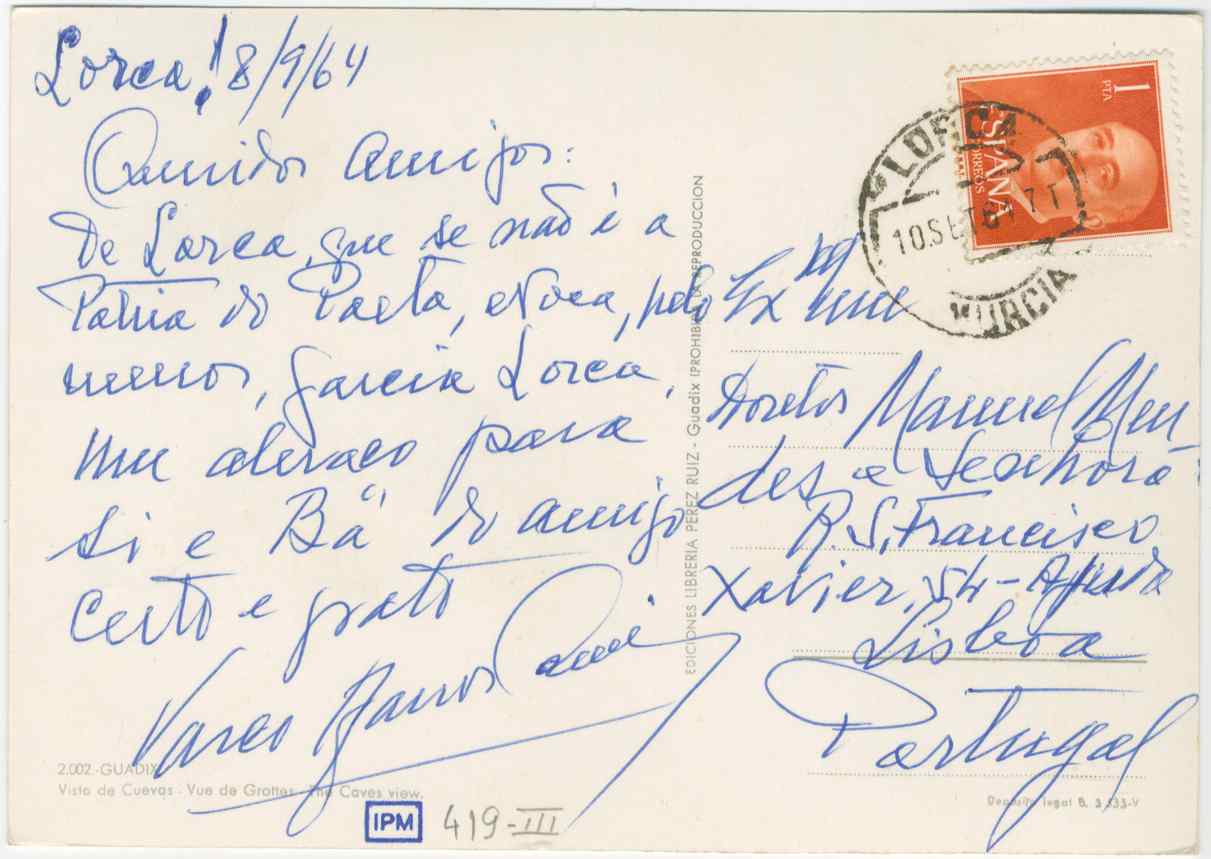 Lorca! 8/9/64
Queridos amigos:
De Lorca, que se não é a
Pátria do Poeta, evoca, pelo
menos, Garcia Lorca,
um abraço para
si e Bá do amigo
certo e grato
Vasco
Exmº
Doutor Manuel Men-
des e Senhora
R. S. Francisco
Xavier, 54 - Ajuda
Lisboa
Portugal
1 PTA
ESPAÑA
CORREOS
LORCA
10 SET 64 7T
MURCIA
EDICIONES LIBRERIA PEREZ RUIZ - Guadix (PROHIBIDA LA REPRODUCCION
2.002.-GUADIX
Vista de Cuevas - Vue de Grottes - The Caves view.
Depósito legal B. 3 533-V
IPM 419-III